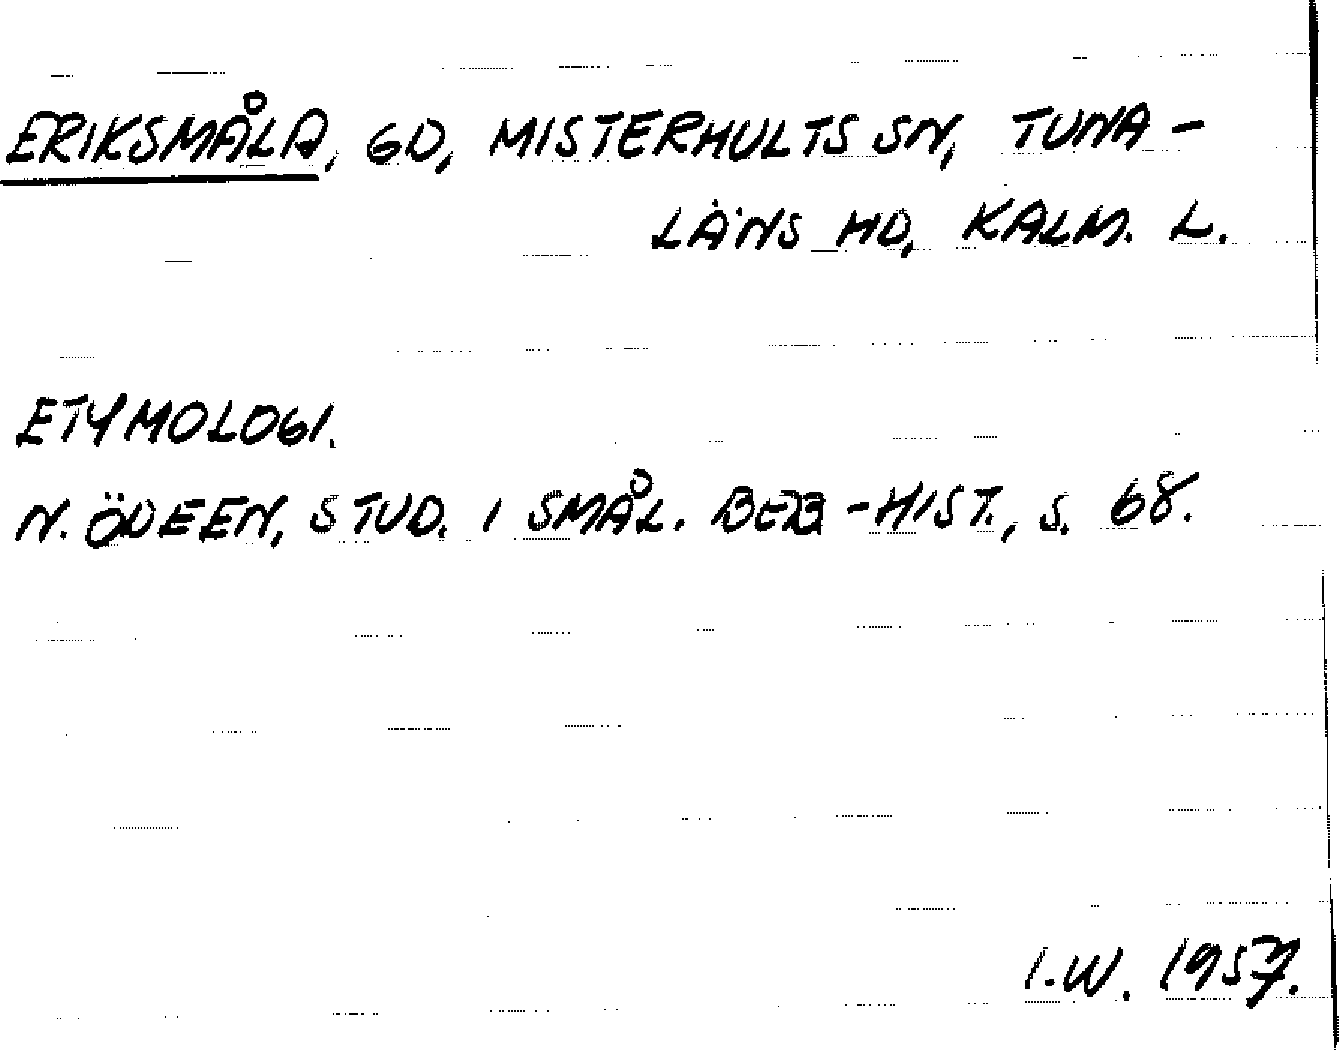 ERIKSMÅLA, GD, MISTERHULTS SN, TUNA-
LÄNS HD, KALM. L.
ETYMOLOGI.
N. ÖDEEN, STUD. I SMÅL. BEB-HIST., S. 68.
I.W. 1957.